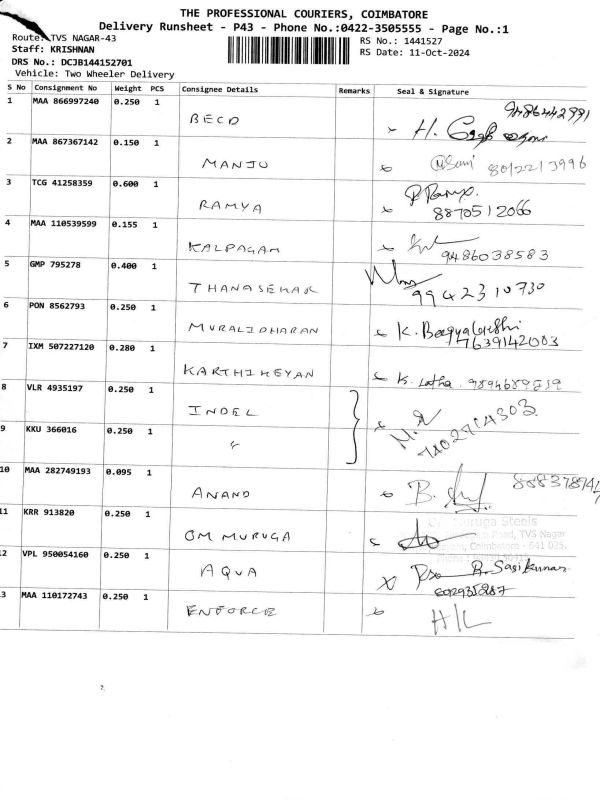 THE PROFESSIONAL COURIERS, COIMBATORE
Delivery Runsheet - P43 - Phone No.:0422-3505555 - Page No.:1
Route: TVS NAGAR-43
RS No.: 1441527
Staff: KRISHNAN
RS Date: 11-Oct-2024
DRS No.: DCJB144152701
Vehicle: Two Wheeler Delivery
S No Consignment No Weight PCS Consignee Details Remarks Seal & Signature
1 MAA 866997240 0.250 1 BECD 9486442991
H.
2 MAA 867367142 0.150 1 MANJU 8012213996
3 TCG 41258359 0.600 1 RAMYA P Ramya.
8870512066
4 MAA 110539599 0.155 1 KALPAGAM
9486038583
5 GMP 795278 0.400 1 THANASEKAR
9942310730
6 PON 8562793 0.250 1 MURALIDHARAN K. Bagyalakshi
7639142003
7 IXM 507227120 0.280 1 KARTHIKEYAN K. Latha
8 VLR 4935197 0.250 1 INDEL
9 KKU 366016 0.250 1 "
10 MAA 282749193 0.095 1 ANAND B.
11 KRR 913820 0.250 1 OM MURUGA
Muruga Steels
Road, TVS Nagar
Coimbatore - 641 025.
12 VPL 950054160 0.250 1 AQUA R. Sasikumar
3 MAA 110172743 0.250 1 ENFORCE